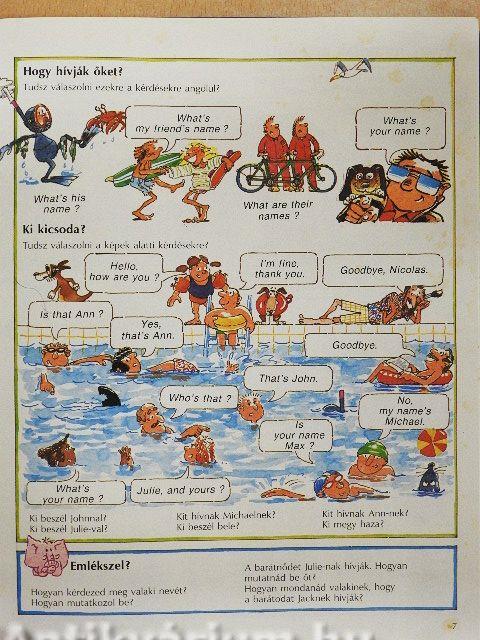 Hogy hívják őket?
Tudsz válaszolni ezekre a kérdésekre angolul?
What's his
name ?
What's
my friend's name ?
What are their
names ?
What's
your name ?
Ki kicsoda?
Tudsz válaszolni a képek alatti kérdésekre?
Hello,
how are you ?
I'm fine,
thank you.
Goodbye, Nicolas.
Is that Ann ?
Yes,
that's Ann.
Goodbye.
That's John.
Who's that ?
No,
my name's
Michael.
Is
your name
Max ?
What's
your name ?
Julie, and yours ?
Ki beszél Johnnal?
Ki beszél Julie-val?
Kit hívnak Michaelnek?
Ki beszél bele?
Kit hívnak Ann-nek?
Ki megy haza?
Emlékszel?
Hogyan kérdezed meg valaki nevét?
Hogyan mutatkozol be?
A barátnődet Julie-nak hívják. Hogyan
mutatnád be őt?
Hogyan mondanád valakinek, hogy
a barátodat Jacknek hívják?
7